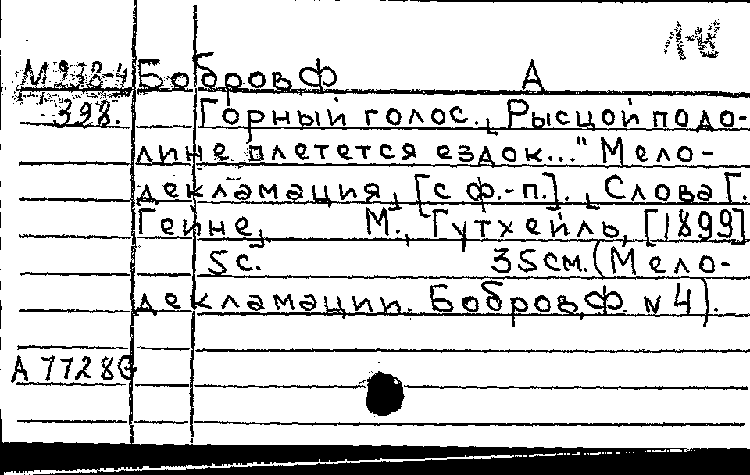 1-48
М 938-4 Бобров Ф А
398. Горный голос. „Рысцой по до-
лине плетется ездок..." Мело-
декламация, [с ф.-п.]. Слова Г.
Гейне, М., Гутхейль, [1899]
5с. 35см. (Мело-
декламации. Бобров, Ф. N 4).
А 77286